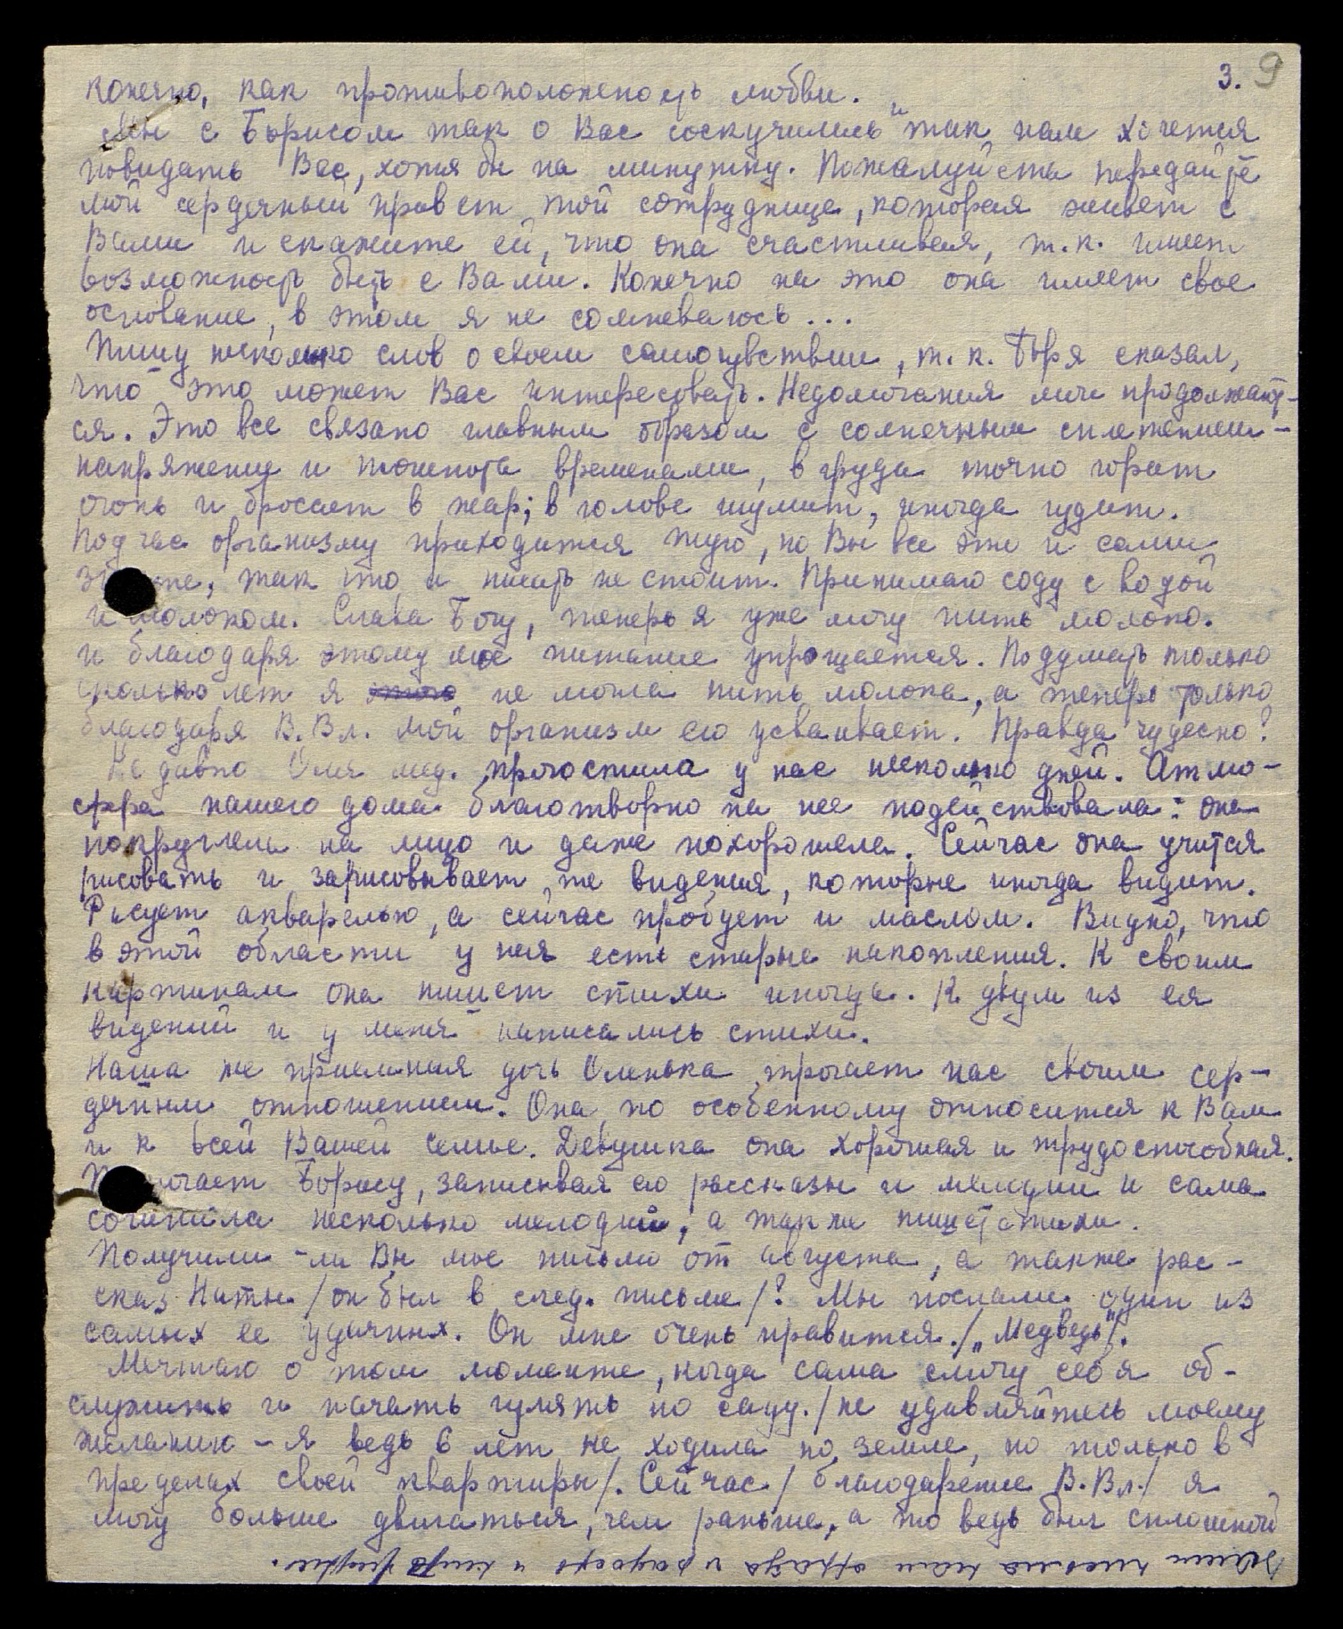 3. 9
конечно, как противоположность любви.
Мы с Борисом так о Вас соскучились и так нам хочется
повидать Вас, хотя бы на минутку. Пожалуйста передайте
мой сердечный привет той сотруднице, которая живет с
Вами и скажите ей, что она счастливая, т.к. имеет
возможность быть с Вами. Конечно на это она имеет свое
основание, в этом я не сомневаюсь...
Пишу несколько слов о своем самочувствии, т.к. Боря сказал,
что это может Вас интересовать. Недомогания мои продолжают-
ся. Это все связано главным образом с солнечным сплетением -
напряжение и тошнота временами, в груди точно горит
огонь и бросает в жар; в голове шумит, иногда гудит.
Подчас организму приходится туго, но Вы все это и сами
зн те, так что и писать не стоит. Принимаю соду с водой
и молоком. Слава Богу, теперь я уже могу пить молоко.
и благодаря этому мое питание упрощается. Подумать только
сколько лет я не могла пить молока, а теперь только
благодаря В.Вл. мой организм его усваивает. Правда чудесно?
Недавно Оля мед. прогостила у нас несколько дней. Атмо-
сфера нашего дома благотворно на нее подействовала: она
покруглела на лицо и даже похорошела. Сейчас она учится
рисовать и зарисовывает те видения, которые иногда видит.
Рисует акварелью, а сейчас пробует и маслом. Видно, что
в этой области у нея есть старые накопления. К своим
картинам она пишет стихи иногда. К двум из ея
видений и у меня написались стихи.
Наша же приемная дочь Оленька трогает нас своим сер-
дечным отношением. Она по особенному относится к Вам
и к всей Вашей семье. Девушка она хорошая и трудоспособная.
П огает Борису, записывая его рассказы и мелодии и сама
сочинила несколько мелодий, а также пишет стихи.
Получили-ли Вы мое письмо от августа, а также рас-
сказ Наты /он был в след. письме/? Мы послали один из
самых ее удачных. Он мне очень нравится. /„Медведь"/.
Мечтаю о том моменте, когда сама смогу себя об-
служить и начать гулять по саду. /не удивляйтесь моему
желанию - я ведь 6 лет не ходила по земле, но только в
пределах своей квартиры/. Сейчас /благодарение В.Вл./ я
могу больше двигаться, чем раньше, а то ведь был сплошной
письма нам и радость и